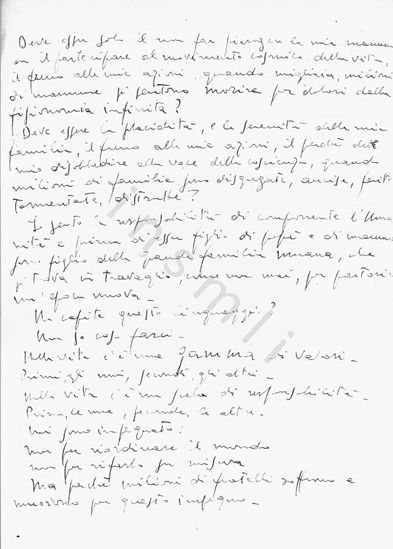 Deve esser solo il non far piangere la mia mamma
o il partecipare al movimento cosmico della vita,
il freno alle mie azioni, quando migliaia, milioni
di mamme si sentono morire per dolori dalla
fisionomia infinita?
Deve essere la placidità, e la serenità della mia
famiglia, il freno alle mie azioni, il perché del
mio disobbedire alla voce della coscienza, quando
milioni di famiglie son disgregate, uccise, ferite
tormentate, distrutte?
Io sento la responsabilità di componente l'Uma
nità e prima di esser figlio di papà e di mamma
son figlio della grande famiglia umana, che
si trova in travaglio, come non mai, per partorire
un'epoca nuova_
Mi capite questo linguaggio?
Non so cosa farci_
Nella vita c'è una gamma di valori_
Primi gli uni, secondi gli altri_
Nella vita c'è una scala di responsabilità_
Prima le une, seconde, le altre.
Mi sono impegnato:
non per riordinare il mondo
non per rifarlo su misura
Ma perché milioni di fratelli soffrono e
muoiono per questo impegno_
insmli